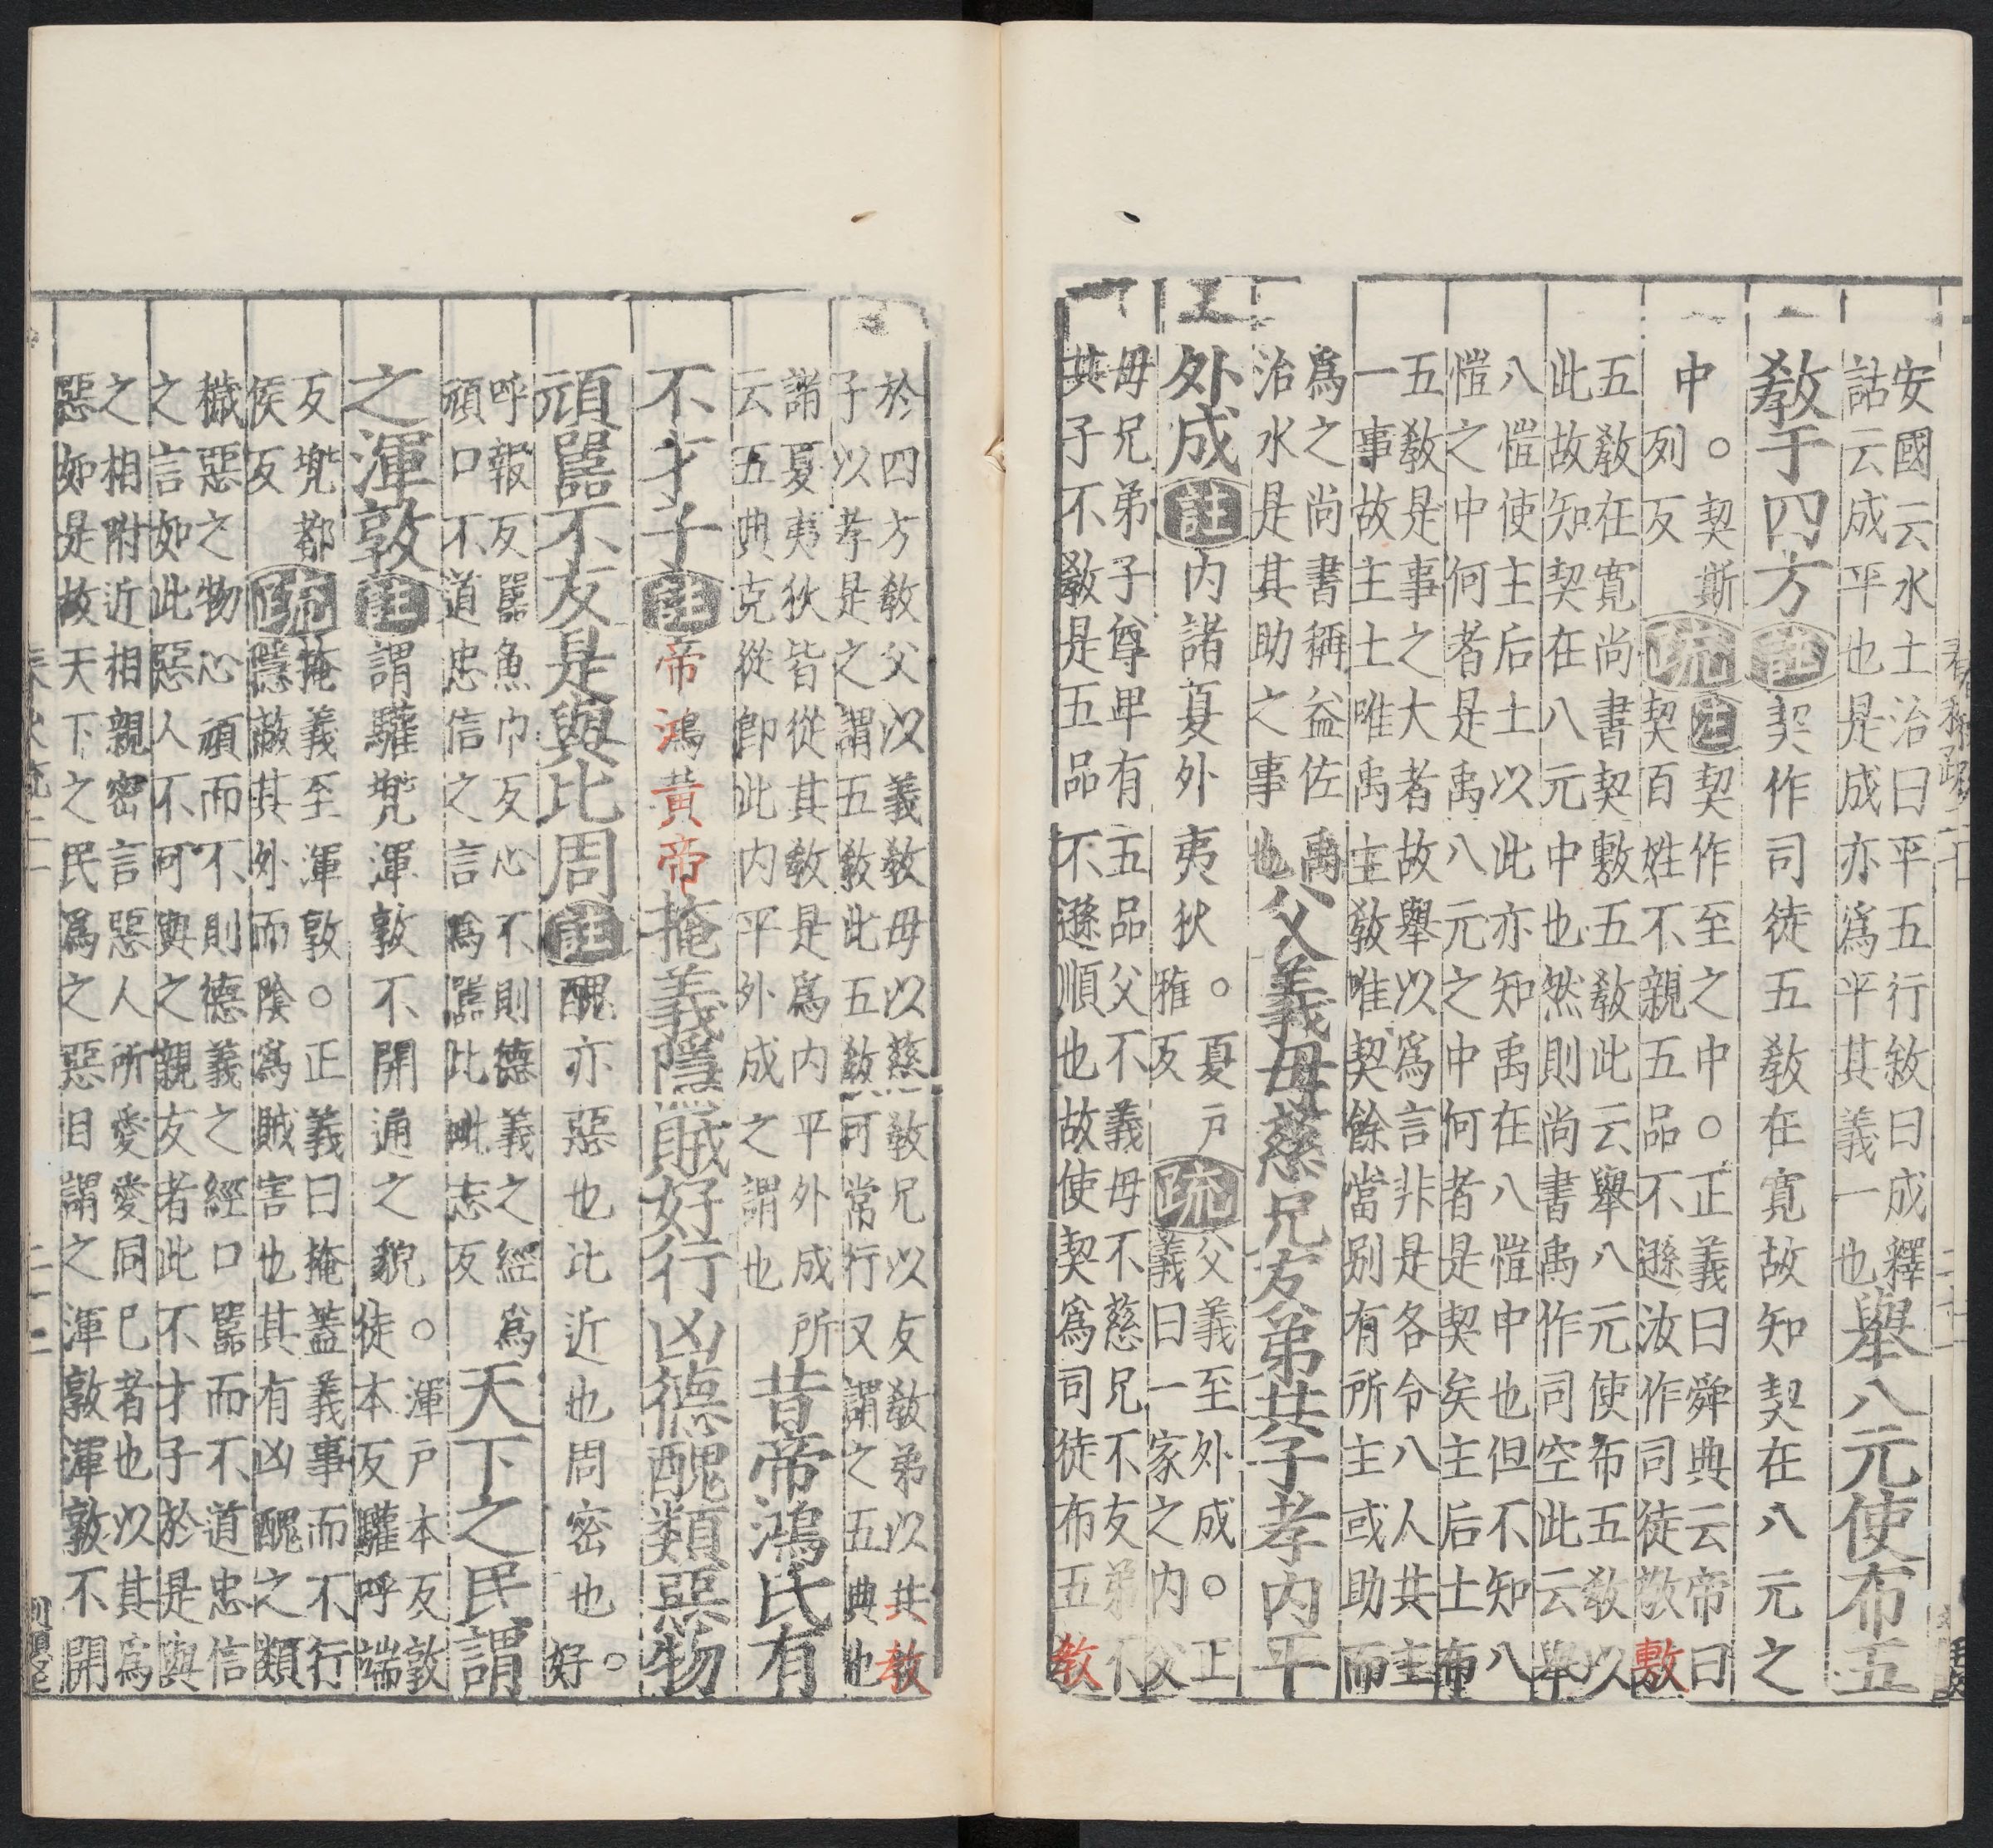 安國云水土治曰平五行敘曰成釋
詁云成平也是成亦爲平其義一也
舉八元使布五
敎于四方註契作司徒五敎在寛故知契在八元之
中。契斯
列反
疏註契作至之中。正義曰舜典云帝曰
契百姓不親五品不遜汝作司徒敬敷
五敎在寛尚書契敷五敎此云舉八元使布五敎以
此故知契在八元中也然則尚書禹作司空此云舉
八愷使主后土以此亦知禹在八愷中也但不知八
愷之中何者是禹八元之中何者是契矣主后土布
五敎是事之大者故舉以爲言非是各令八人共主
一事故主土唯禹主敎唯契餘當别有所主或助而
爲之尚書稱益佐禹
治水是其助之事也
父義母慈兄友弟共子孝内平
外成註内諸夏外夷狄。夏戸
雅反
疏父義至外成。正
義曰一家之内父
母兄弟子尊卑有五品父不義母不慈兄不友弟不
共子不敎是五品不遜順也故使契爲司徒布五敎
於四方敎父以義敎母以慈敎兄以友敎弟以共敎
子以孝是之謂五敎此五敎可常行又謂之五典也
諸夏夷狄皆從其敎是爲内平外成所
云五典克從卽此内平外成之謂也
昔帝鴻氏有
不才子註帝鴻黃帝掩義隱賊好行凶德醜類惡物
頑嚚不友是與比周註醜亦惡也比近也周密也。好
呼報反嚚魚巾反心不則德義之經爲
頑口不道忠信之言爲嚚比毗志反
天下之民謂
之渾敦註謂驩兜渾敦不開通之貌。渾戸本反敦
徒本反驩呼端
反兜都
侯反
疏掩義至渾敦。正義曰掩蓋義事而不行
隱蔽其外而陰爲賊害也其有凶醜之類
穢惡之物心頑而不則德義之經口嚚而不道忠信
之言如此惡人不可與之親友者此不才子於是與
之相附近相親密言惡人所愛愛同己者也以其爲
惡如是故天下之民爲之惡目謂之渾敦渾敦不開